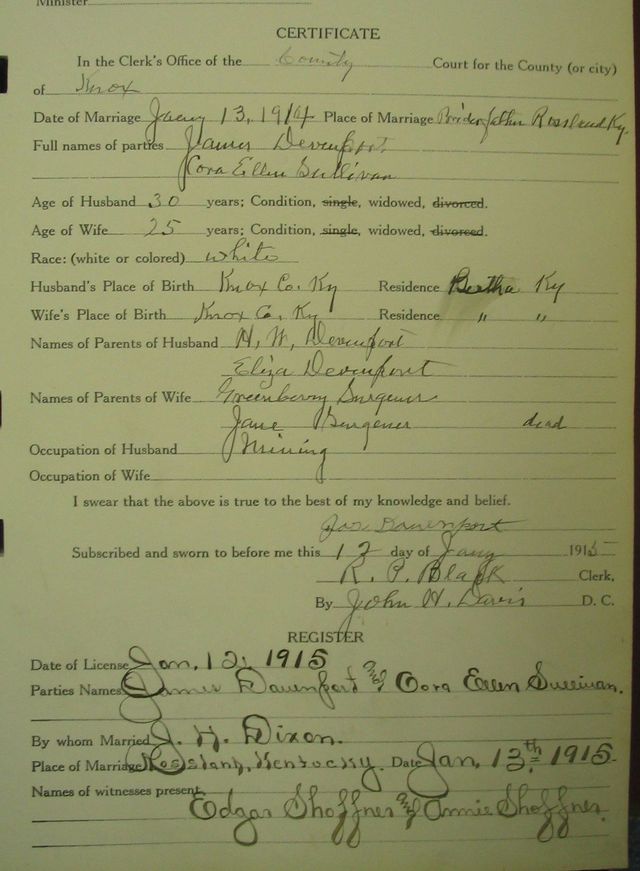 Minister
CERTIFICATE
In the Clerk's Office of the County Court for the County (or city)
of Knox
Date of Marriage Jany 13, 1914 Place of Marriage Brides father Rossland Ky.
Full names of parties James Devenport
Cora Ellen Sullivan
Age of Husband 30 years; Condition, single, widowed, divorced.
Age of Wife 25 years; Condition, single, widowed, divorced.
Race: (white or colored) white
Husband's Place of Birth Knox Co. Ky Residence Bertha Ky
Wife's Place of Birth Knox Co. Ky Residence " "
Names of Parents of Husband H. W. Devenport
Eliza Devenport
Names of Parents of Wife Greenberry Surgener
Jane Surgener dead
Occupation of Husband Mining
Occupation of Wife
I swear that the above is true to the best of my knowledge and belief.
Jas Davenport
Subscribed and sworn to before me this 12 day of Jany 1915
R. P. Black Clerk,
By John H. Davis D. C.
REGISTER
Date of License Jan. 12, 1915
Parties Names James Davenport and Cora Ellen Sullivan.
By whom Married J. H. Dixon.
Place of Marriage Rossland, Kentucky. Date Jan. 13th 1915.
Names of witnesses present
Edgar Shoffner and Annie Shoffner.